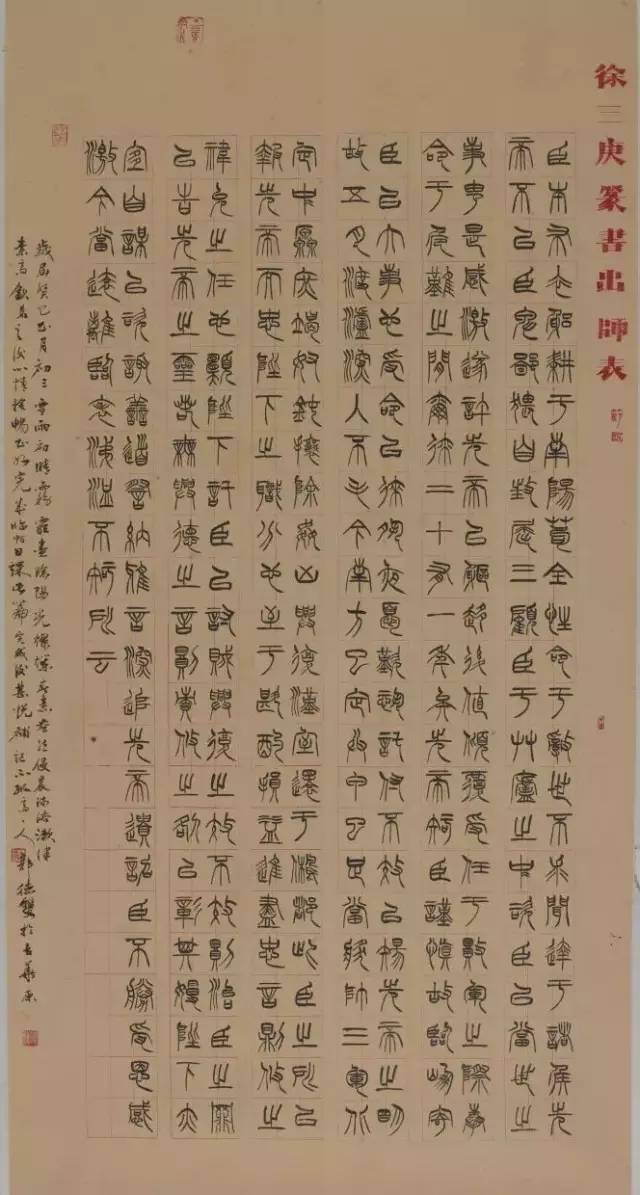 徐三庚篆書出師表 節臨
臣本布衣躬耕于南陽苟全性命于亂世不求聞達于諸侯先
帝不以臣卑鄙猥自封屈三顧臣于艸廬之中咨臣以當世之
事由是感激遂許先帝以驅馳後值傾覆受任于敗軍之際奉
命于危難之間爾來二十有一年矣先帝知臣謹慎故臨崩寄
臣以大事也受命以來夙夜憂歎恐託付不效以傷先帝之明
故五月渡瀘深入不毛今南方已定兵甲已足當獎帥三軍北
定中原庶竭駑鈍攘除姦凶興復漢室還于舊都此臣之所以
報先帝而忠陛下之職分也至于斟酌損益進盡忠言則攸之
禕允之任也願陛下託臣以討賊興復之效不效則治臣之罪
以告先帝之靈若無興德之言則責攸之咎以彰其慢陛下亦
宜自謀以咨諏善道察納雅言深追先帝遺詔臣不勝受恩感
激今當遠離臨表涕泣不知所云
歲屆癸巳正月初三雪雨初晴霧霾盡除陽光燦爛